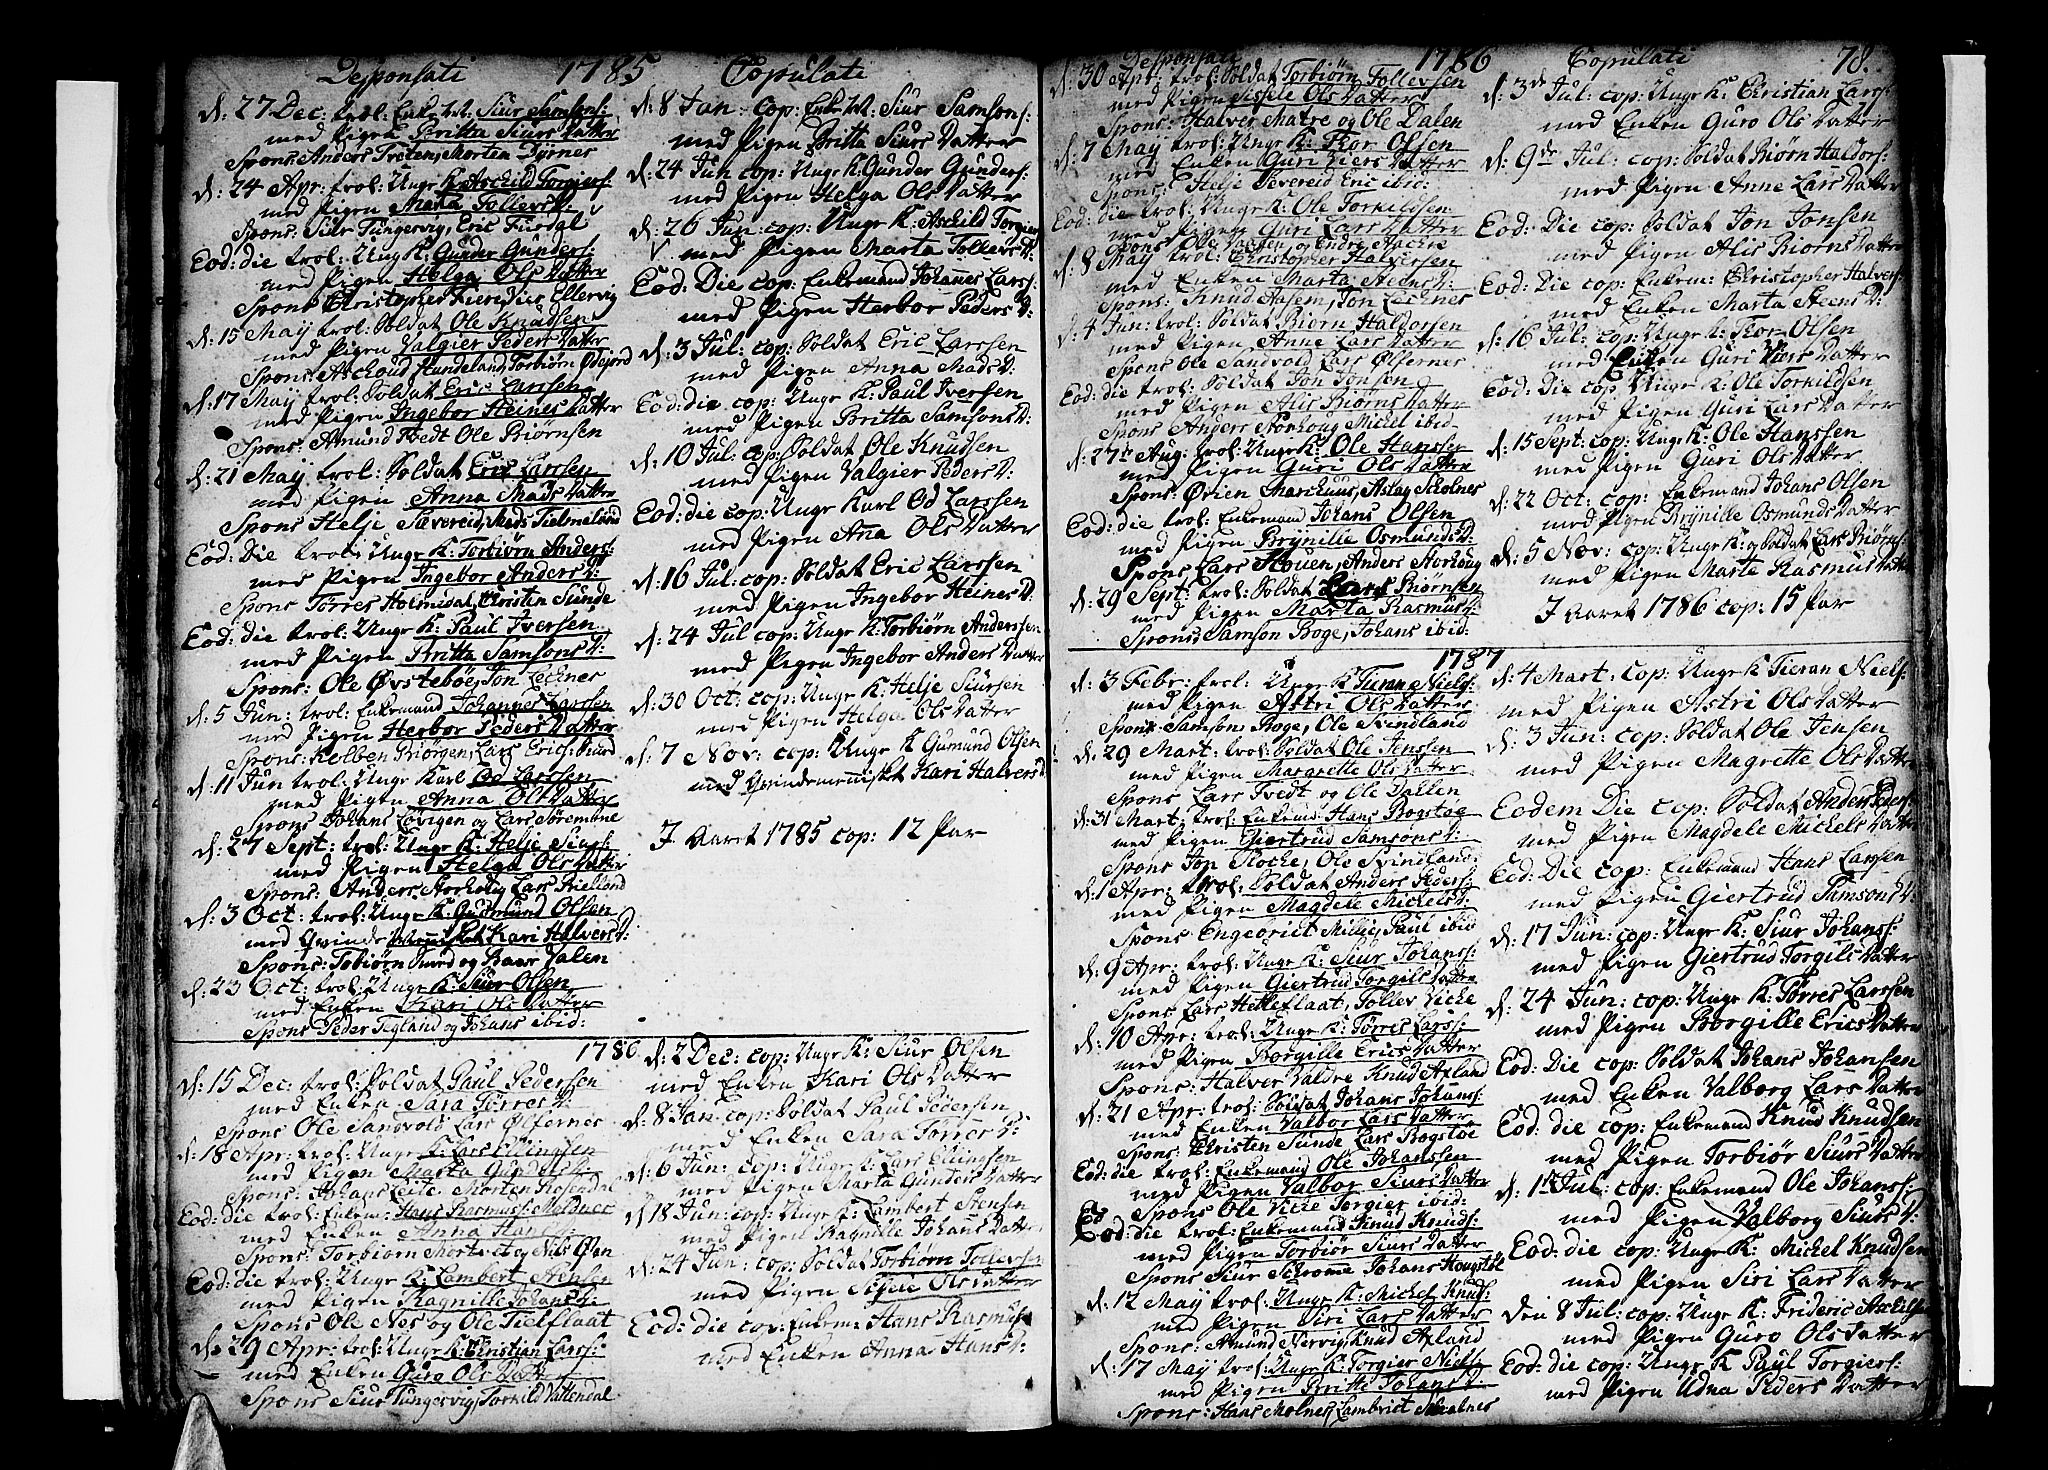 Desponsati 1785 Copulati
d: 27 Dec: trol: Enke M: Siur Samsons:
med Pigen Britta Siurs Datter
Spons: Anders Tveten, Morten Dyrnes
d: 24 Apr: trol: Unge K: Aschild Torgiers:
med Pigen Marta Tollevs D:
Spons: Siur Tungesvig, Eric Furdal
Eod: die trol: Ung K: Gunder Gunders:
med Pigen Helga Ols Datter
Spons Christopher Ellervig
d: 15 May trol: Soldat Ole Knudsen
med Pigen Valgier Peders Datter
Spons: Aschoud Hundeland, Torbiørn Ødejord
d: 17 May trol: Soldat Eric Larssen
med Pigen Ingebor Heines Datter
Spons: Amund Tvedt Ole Biørnsen
d: 21 May trol: Soldat Eric Larssen
med Pigen Anna Mads Datter
Spons Helje Sævereid, Mads Tielmeland
Eod: Die trol: Unge K: Torbiørn Anders:
med Pigen Ingebor Anders D:
Spons Torres Holmedal, Christen Sunde
Eod: die trol: Unge K: Paul Iversen
med Pigen Britta Samsons D:
Spons: Ole Østebøe, Jon Lechnes
d: 5 Jun: trol: Enkemand Johannes Larssen
med Pigen Herbor Peders Datter
Spons: Kolben Biørgen, Lars Erics:
d: 11 Jun trol: Unge Karl Od Larssen
med Pigen Anna Ols Datter
Spons Johans Løvigen og Lars Søremone
d: 27 Sept: trol: Unge K: Helje Siurs:
med Pigen Helga Ols Datter
Spons: Anders Storhoug Lars Bielland
d: 3 Oct: trol: Unge K: Gudmund Olsen
med Qvinde Mennisket Kari Halvers D:
Spons: Tobiørn og Baar Dalen
d: 23 Oct: trol: Unge K: Siur Olsen
med Enken Kari Ols Datter
Spons Peder Tegland og Johans ibid:
1786
d: 15 Dec: trol: Soldat Paul Pedersen
med Enken Sara Torres D:
Spons Ole Sandvold Lars Ølfernes
d: 18 Apr: trol: Unge K: Lars Ellingsen
med Pigen Marta Gunders D:
Spons: Johans Leite Morten Rosendal
Eod: die trol: Enkem: Hans Rasmus: Moldnes
med Enken Anna Hans D:
Spons: Torbiørn og Nils Øen
Eod: die trol: Unge K: Lambert Stensen
med Pigen Ragnille Johans D:
Spons Ole Nes og Ole Tielflaat
d: 29 Apr: trol: Unge K: Christian Larss:
med Enken Guro Ols Datter
Spons Siur Tungesvig, Torkild Vattendal
d: 8 Jan: cop: Enke M: Siur Samsons:
med Pigen Britta Siurs Datter
d: 24 Jun cop: Unge K: Gunder Gunders:
med Pigen Helga Ols Datter
d: 26 Jun: cop: Unge K: Aschild Torgiers
med Pigen Marta Tollevs D:
Eod: Die cop: Enkemand Johannes Larss:
med Pigen Herbor Peders D:
d: 3 Jul: cop: Soldat Eric Larssen
med Pigen Anna Mads D:
Eod: die cop: Unge K: Paul Iversen
med Pigen Britta Samsons D:
d: 10 Jul: cop: Soldat Ole Knudsen
med Pigen Valgier Peders D:
Eod: die cop: Unge Karl Od Larssen
med Pigen Ana Ols Datter
d: 16 Jul: cop: Soldat Eric Larssen
med Pigen Ingebor Heines D:
d: 24 Jul cop: Unge K: Torbiørn Anderssen
med Pigen Ingebor Anders Datter
d: 30 Oct: cop: Unge K: Helje Siursen
med Pigen Helga Ols Datter
d: 7 Nov: cop: Unge K Gumund Olsen
med Qvindemennisket Kari Halvers D:
I Aaret 1785 cop: 12 Par
d: 2 Dec: cop: Unge K: Siur Olsen
med Enken Kari Ols Datter
d: 8 Jan: cop: Soldat Paul Pedersen
med Enken Sara Torres D:
d: 6 Jun: cop: Unge K: Lars Ellingsen
med Pigen Marta Gunders Datter
d: 18 Jun: cop: Unge K: Lambert Stensen
med Pigen Ragnille Johans Datter
d: 24 Jun: cop: Soldat Torbiørn Tollevsen
med Pigen Sissele Ols Datter
Eod: die cop: Enkem: Hans Rasmus:
med Enken Anna Hans D:
Desponsati 1786 Copulati 78.
d: 30 Apr: trol: Soldat Torbiørn Tollevsen
med Pigen Sissele Ols Datter
Spons: Halver Matre og Ole Dalen
d: 7 May trol: Unge K: Thor Olsen
med Enken Guri Datter
Spons: Helje Severeid Eric ibid:
Eod: die trol: Unge K: Ole Torkildsen
med Pigen Guri Lars Datter
Spons Ole og Endre
d: 8 May trol: Christopher Halversen
med Enken Marta Steens D:
Spons: Knud Aasem, Jon Lechnes
d: 4 Jun: trol: Soldat Biørn Haldorsen
med Pigen Anne Lars Datter
Spons Ole Sandvold Lars Ølfernes
Eod: die trol: Soldat Jon Jonsen
med Pigen Alis Biørns Datter
Spons Anders Storhoug Michel ibid
d: 27 Aug: trol: Unge K: Ole Hanssen
med Pigen Guri Ols Datter
Spons: Ørien Marchuus, Aslag Skolnes
Eod: die trol: Enkemand Johans Olsen
med Pigen Brynille Osmunds D:
Spons Lars Houen, Anders Storhoug
d: 29 Sept: trol: Soldat Lars Biørnsen
med Pigen Marta Rasmus D:
Spons: Samson Boge, Johans ibid:
1787
d: 3 Febr: trol: Unge K Niels:
med Pigen Astri Ols Datter
Spons: Samsons Boge, Ole Svindland
d: 29 Mart: trol: Soldat Ole Jenssen
med Pigen Margrette Ols Datter
Spons Lars Tvedt og Ole Dallen
d: 31 Mart: trol: Enkemd: Hans Bogstøe
med Pigen Giertrud Samsons D:
Spons Jon Floche, Ole Svindland:
d: 1 Apr: trol: Soldat Anders Peders:
med Pigen Magdele Michels D:
Spons Engebrict Millie, Paul ibid
d: 9 Apr: trol: Unge K: Siur Johans:
med Pigen Giertrud Torgils Datter
Spons Lars Hetleflaat, Tollev Vicke
d: 10 Apr: trol: Unge K: Torres Larss:
med Pigen Borgille Erics Datter
Spons: Halver Valdre Knud Axland
d: 21 Apr: trol: Soldat Johans Johans:
med Enken Valbor Lars Datter
Spons Christen Sunde Lars Bogstøe
Eod: die trol: Enkemand Ole Johanssen
med Pigen Valbor Siurs Datter
Spons Ole Vicke Torgier ibid:
Eod: die trol: Enkemand Knud Knuds:
med Pigen Torbiør Siurs Datter
Spons Siur Schrome Johans Hougstøe
d: 12 May trol: Unge K: Michel Knuds:
med Pigen Siri Lars Datter
Spons: Amund Nervig, Knud Axland
d: 17 May trol: Unge K: Torgier Niels:
med Pigen Britte Johans D:
Spons: Hans Molnes, Lambrict Skaalnes
d: 3de Jul: cop: Unge K: Christian Larss:
med Enken Guro Ols Datter
d: 9de Jul: cop: Soldat Biørn Haldors:
med Pigen Anne Lars Datter
Eod: Die cop: Soldat Jon Jonsen
med Pigen Alis Biørns Datter
Eod: Die cop: Enkem: Christopher Halvers:
med Enken Marta Steens D:
d: 16 Jul: cop: Unge K: Thor Olsen
med Enken Guri Datter
Eod: Die cop: Unge K: Ole Torkildsen
med Pigen Guri Lars Datter
d: 15 Sept: cop: Unge K: Ole Hanssen
med Pigen Guri Ols Datter
d: 22 Oct: cop: Enkemand Johans Olsen
med Pigen Brynille Osmunds Datter
d: 5 Nov: cop: Unge K: og Soldat Lars Biørns:
med Pigen Marte Rasmus Datter
I Aaret 1786 cop: 15 Par
d: 4 Mart: cop: Unge K Tieran Niels:
med Pigen Astri Ols Datter
d: 3 Jun: cop: Soldat Ole Jensen
med Pigen Magrette Ols Datter
Eodem Die cop: Soldat Anders Peders:
med Pigen Magdele Michels Datter
Eod: Die cop: Enkemand Hans Larssen
med Pigen Giertrud Samsons D:
d: 17 Jun: cop: Unge K: Siur Johans:
med Pigen Giertrud Torgils Datter
d: 24 Jun: cop: Unge K: Torres Larssen
med Pigen Borgille Erics Datter
Eod: Die cop: Soldat Johans Johansen
med Enken Valborg Lars Datter
Eod: die cop: Enkemand Knud Knudsen
med Pigen Torbiør Siurs Datter
d: 1te Jul: cop: Enkemand Ole Johans:
med Pigen Valborg Siurs D:
Eod: die cop: Unge K: Michel Knudsen
med Pigen Siri Lars Datter
den 8 Jul: cop: Unge K: Frideric Aschilsen
med Pigen Guro Ols Datter
Eod: die cop: Unge K Paul Torgiers:
med Pigen Udna Peders Datter